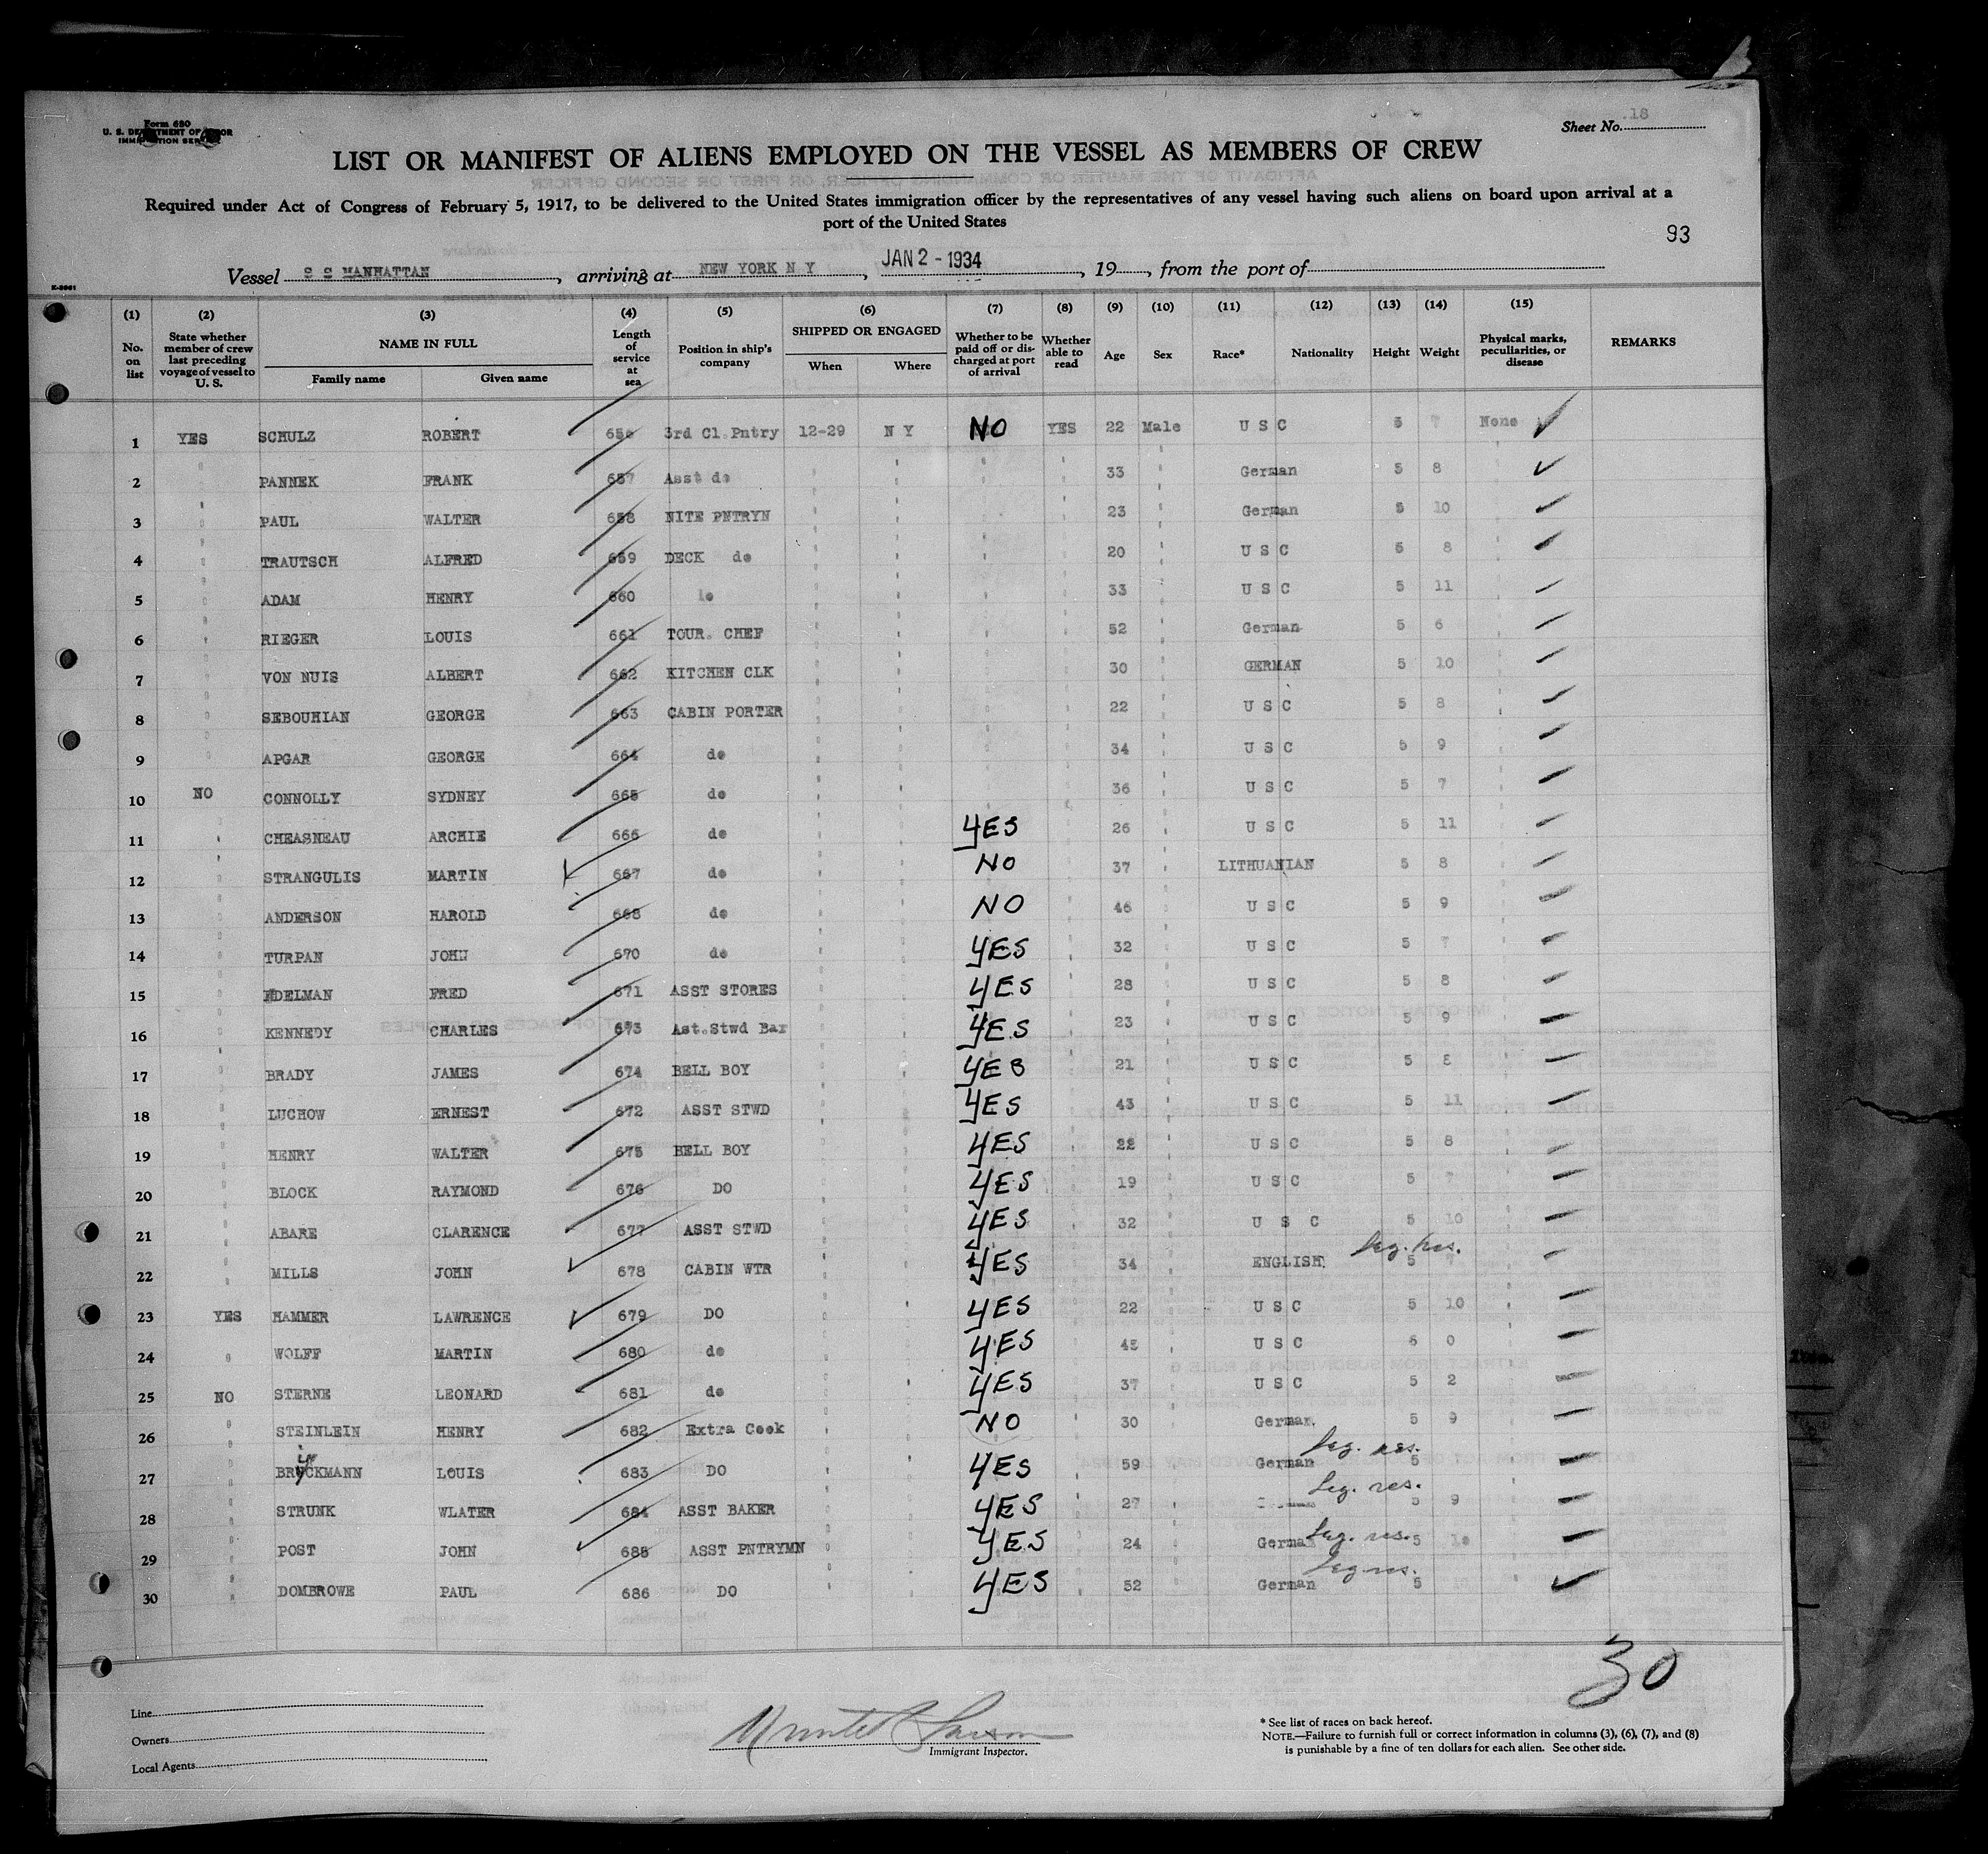 Form 680
U. S. DEPARTMENT OF LABOR
IMMIGRATION SERVICE
Sheet No. 18
LIST OR MANIFEST OF ALIENS EMPLOYED ON THE VESSEL AS MEMBERS OF CREW
Required under Act of Congress of February 5, 1917, to be delivered to the United States immigration officer by the representatives of any vessel having such aliens on board upon arrival at a
port of the United States
93
Vessel S S MANHATTAN, arriving at NEW YORK N Y, JAN 2 - 1934, 19, from the port of
(1) (2) (3) (4) (5) (6) (7) (8) (9) (10) (11) (12) (13) (14) (15)
No. on list State whether member of crew last preceding voyage of vessel to U. S. NAME IN FULL Family name Given name Length of service at sea Position in ship's company SHIPPED OR ENGAGED When Where Whether to be paid off or discharged at port of arrival Whether able to read Age Sex Race* Nationality Height Weight Physical marks, peculiarities, or disease REMARKS
1 YES SCHULZ ROBERT 656 3rd Cl.Pntry 12-29 N Y NO YES 22 Male U S C 5 7 None
2 " PANNEK FRANK 657 Asst do " " " " 33 " German 5 8
3 " PAUL WALTER 658 NITE PNTRYN " " " " 23 " German 5 10
4 " TRAUTSCH ALFRED 659 DECK do " " " " 20 " U S C 5 8
5 " ADAM HENRY 660 " " " " 33 " U S C 5 11
6 " RIEGER LOUIS 661 TOUR. CHEF " " " " 52 " German 5 6
7 " VON NUIS ALBERT 662 KITCHEN CLK " " " " 30 " GERMAN 5 10
8 " SEBOUHIAN GEORGE 663 CABIN PORTER " " " " 22 " U S C 5 8
9 " APGAR GEORGE 664 do " " " " 34 " U S C 5 9
10 NO CONNOLLY SYDNEY 665 do " " " " 36 " U S C 5 7
11 " CHEASNEAU ARCHIE 666 do " " YES " 26 " U S C 5 11
12 " STRANGULIS MARTIN 667 do " " NO " 37 " LITHUANIAN 5 8
13 " ANDERSON HAROLD 668 do " " NO " 46 " U S C 5 9
14 " TURPAN JOHN 670 do " " YES " 32 " U S C 5 7
15 " EDELMAN FRED 671 ASST STORES " " YES " 28 " U S C 5 8
16 " KENNEDY CHARLES 673 Ast.Stwd Bar " " YES " 23 " U S C 5 9
17 " BRADY JAMES 674 BELL BOY " " YES " 21 " U S C 5 8
18 " LUCHOW ERNEST 672 ASST STWD " " YES " 43 " U S C 5 11
19 " HENRY WALTER 675 BELL BOY " " YES " 22 " U S C 5 8
20 " BLOCK RAYMOND 676 DO " " YES " 19 " U S C 5 7
21 " ABARE CLARENCE 677 ASST STWD " " YES " 32 " U S C 5 10
22 " MILLS JOHN 678 CABIN WTR " " YES " 34 " ENGLISH Leg. res. 5 7
23 YES HAMMER LAWRENCE 679 DO " " YES " 22 " U S C 5 10
24 " WOLFF MARTIN 680 do " " YES " 45 " U S C 6 0
25 NO STERNE LEONARD 681 do " " YES " 37 " U S C 5 2
26 " STEINLEIN HENRY 682 Extra Cook " " NO " 30 " German 5 9
27 " BRYCKMANN LOUIS 683 DO " " YES " 59 " German Leg. res. 5
28 " STRUNK WLATER 684 ASST BAKER " " YES " 27 " Leg. res. 5 9
29 " POST JOHN 685 ASST PNTRYMN " " YES " 24 " German Leg. res. 5 10
30 " DOMBROWE PAUL 686 DO " " YES " 52 " German Leg res. 5
30
Line
Owners
Local Agents
Immigrant Inspector.
* See list of races on back hereof.
NOTE.—Failure to furnish full or correct information in columns (3), (6), (7), and (8)
is punishable by a fine of ten dollars for each alien. See other side.